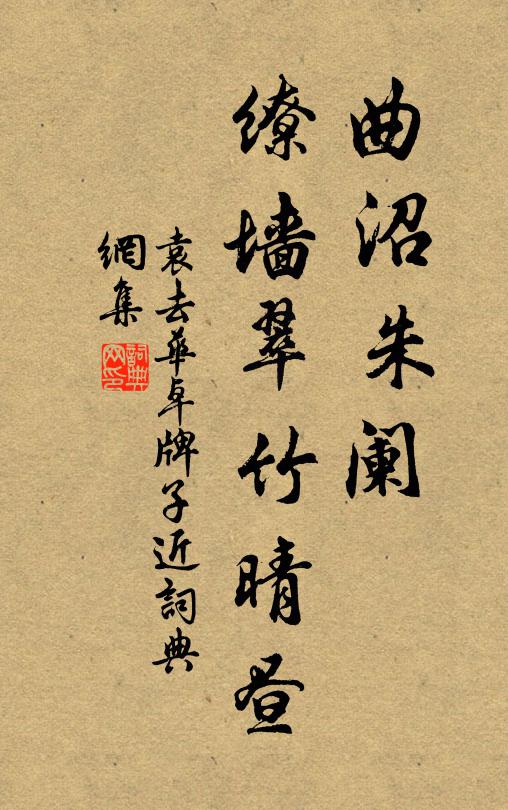 曲沼朱阑
缭墙翠竹晴昼
袁去華卓牌子近詞典
網集
詞典
网印